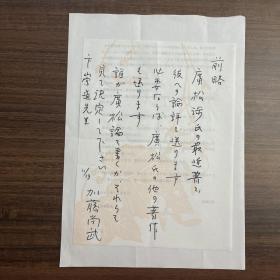 前略
廣松渉氏の最近著と、
彼への論評を送ります
必要ならば、廣松氏の他の著作
も送ります
誰が廣松論を書くか、それらを
見て決定して下さい
加藤尚武